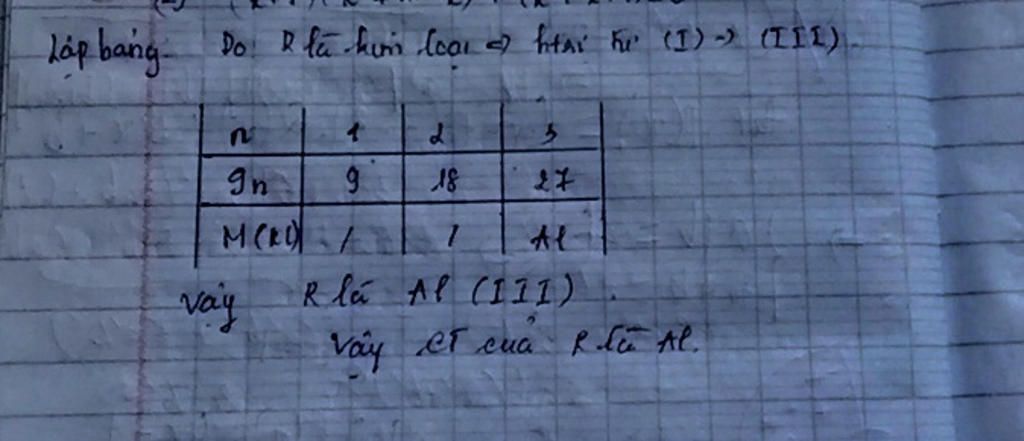 Lập bảng. Do R là kim loại => htrị từ (I) -> (III).
n 1 2 3
9n 9 18 27
M(R) / / Al
Vậy R là Al (III).
Vậy CT của R là Al.